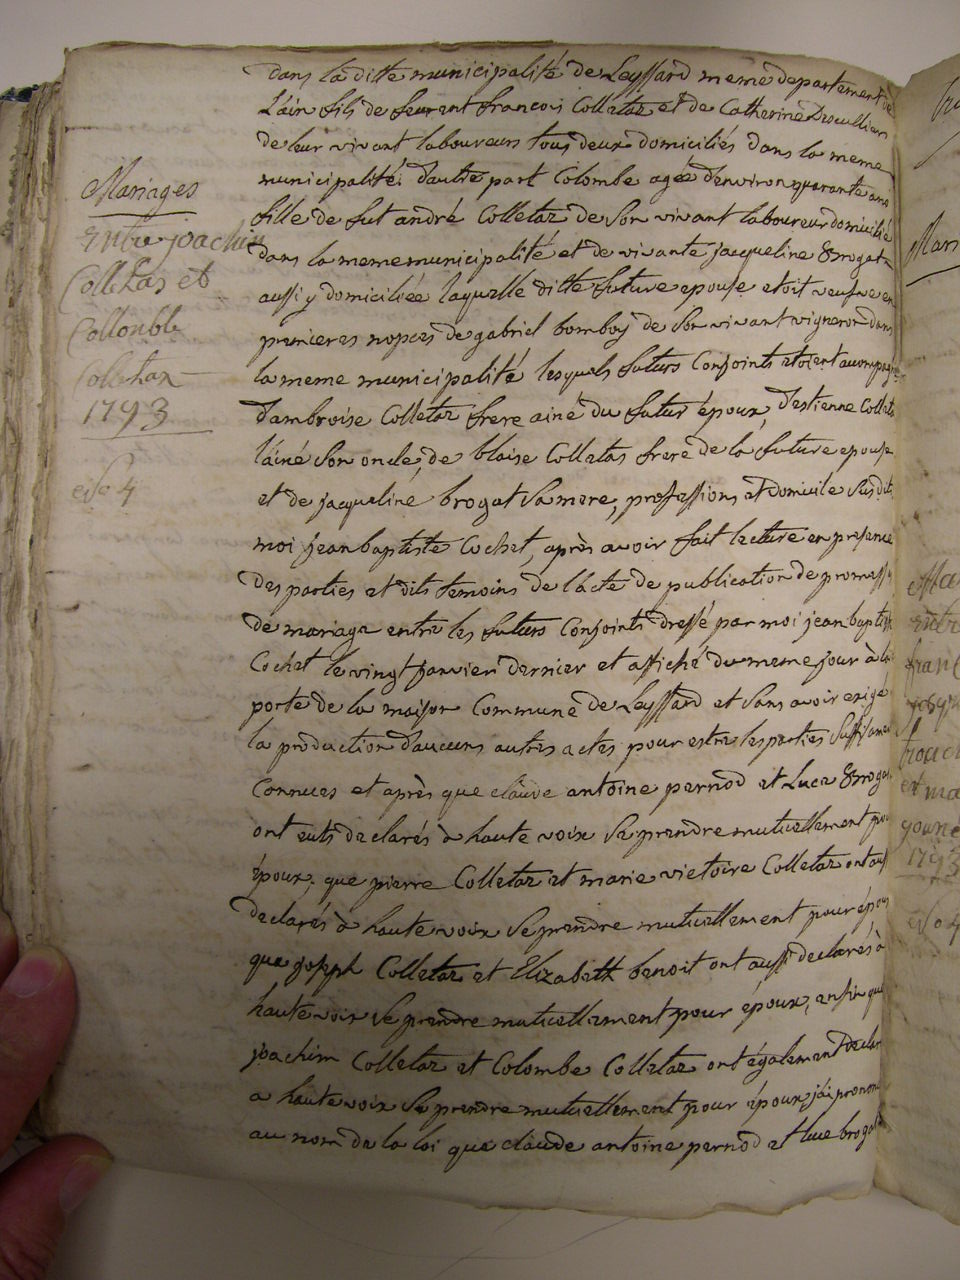 dans la ditte municipalité de Leyssard meme departement de
L'ain fils de feu rent francois Colletaz et de Catherine
de leur vivant laboureurs tous deux domiciliés dans la meme
municipalité. d'autre part Colombe agée d'environ quarante ans
fille de fut andré Colletaz de son vivant laboureur domicilié
dans la meme municipalité et de vivante jacqueline Brogat
aussi y domiciliée laquelle ditte future epouse etoit veufve en
premieres nopces de gabriel bomboy de son vivant vigneron dans
la meme municipalité lesquels futurs Conjoints etoient accompag
d'ambroise Colletaz frere ainé du futur époux, d'estienne Collet
l'ainé son oncle, de blaise Colletas frere de la future epouse
et de jacqueline brogat sa mere, professions et domicile susdits
moi jean baptiste Cochet, après avoir fait lecture en presence
des parties et dits temoins de l'acte de publication de promess
de mariage entre les futurs Conjoints dressé par moi jean baptist
Cochet le vingt janvier dernier et affiché du meme jour à la
porte de la maison Commune de Leyssard et sans avoir exigé
la production d'aucuns autres actes pour estre les parties suffisamen
Connues et après que claude antoine pernod et Luce Brogat
ont euts declarés à haute voix se prendre mutuellement pour
époux, que pierre Colletaz et marie victoire Colletaz ont aussi
declarés à haute voix se prendre mutuellement pour épou
que joseph Colletaz et Elizabeth benoit ont aussi declarés à
haute voix se prendre mutuellement pour époux, enfin que
joachim Colletaz et Colombe Colletaz ont également declar
a haute voix se prendre mutuellement pour époux, j'ai pronon
au nom de la loi que claude antoine pernod et luce brogat
Mariages
entre joachin
Colletas et
Collonble
Colletax
1793
Mari
Ma
entr
franc
et ma
1793